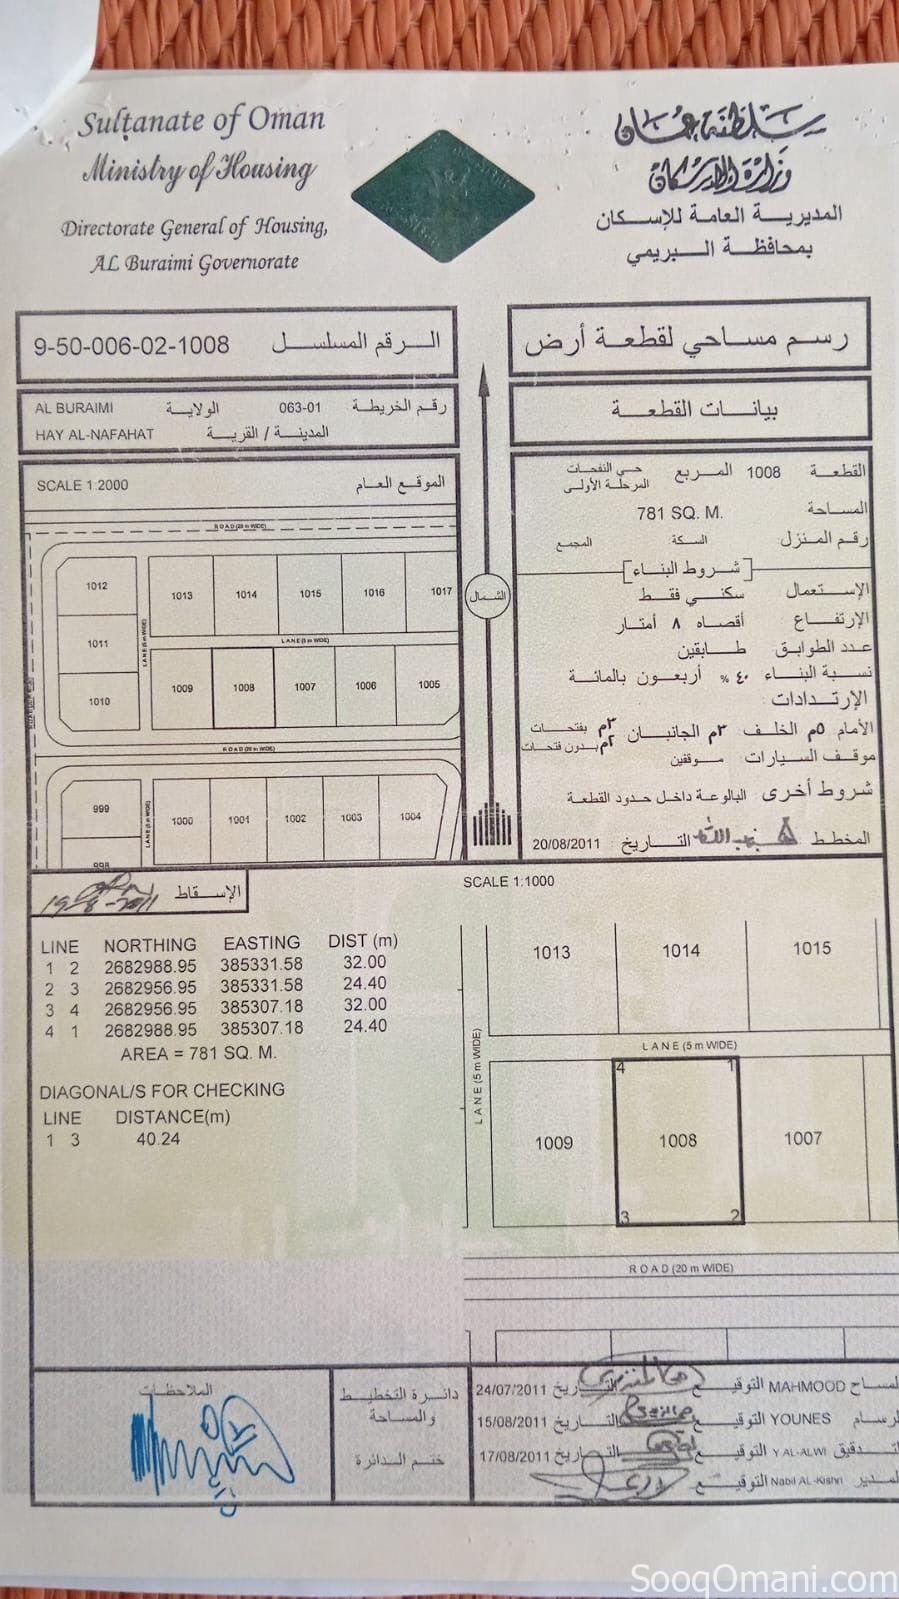 Sultanate of Oman
Ministry of Housing
Directorate General of Housing,
AL Buraimi Governorate
سلطنة عمان
وزارة الإسكان
المديرية العامة للإسكان
بمحافظة البريمي
الرقم المسلسل 9-50-006-02-1008
رسم مساحي لقطعة أرض
رقم الخريطة 063-01 الولاية AL BURAIMI
المدينة / القرية HAY AL-NAFAHAT
بيانات القطعة
الموقع العام SCALE 1:2000
ROAD (20 m WIDE)
1012
1013 1014 1015 1016 1017
1011
LANE (5 m WIDE)
LANE (5 m WIDE)
1010
1009 1008 1007 1006 1005
ROAD (20 m WIDE)
999
LANE (5 m WIDE)
1000 1001 1002 1003 1004
998
الشمال
القطعة 1008 المربع حي النفحات المرحلة الأولى
المساحة 781 SQ. M.
رقم المنزل السكة المجمع
شروط البناء
الإستعمال سكني فقط
الإرتفاع أقصاه ٨ أمتار
عدد الطوابق طابقين
نسبة البناء ٤٠ % أربعون بالمائة
الإرتدادات:
الأمام ٥م الخلف ٣م الجانبان ٣م بفتحات
٢م بدون فتحات
موقف السيارات: موقفين
شروط أخرى: البالوعة داخل حدود القطعة
المخطط التاريخ: 20/08/2011
الإسقاط
19-8-2011
LINE NORTHING EASTING DIST (m)
1 2 2682988.95 385331.58 32.00
2 3 2682956.95 385331.58 24.40
3 4 2682956.95 385307.18 32.00
4 1 2682988.95 385307.18 24.40
AREA = 781 SQ. M.
DIAGONAL/S FOR CHECKING
LINE DISTANCE(m)
1 3 40.24
SCALE 1:1000
1013 1014 1015
LANE (5 m WIDE)
LANE (5 m WIDE)
4 1
1009 1008 1007
3 2
ROAD (20 m WIDE)
الملاحظات
دائرة التخطيط
والمساحة
ختم الدائرة
المساح MAHMOOD التوقيع التاريخ 24/07/2011
الرسام YOUNES التوقيع التاريخ 15/08/2011
التدقيق Y AL-ALWI التوقيع التاريخ 17/08/2011
المدير Nabil AL-Kishri التوقيع
SooqOmani.com